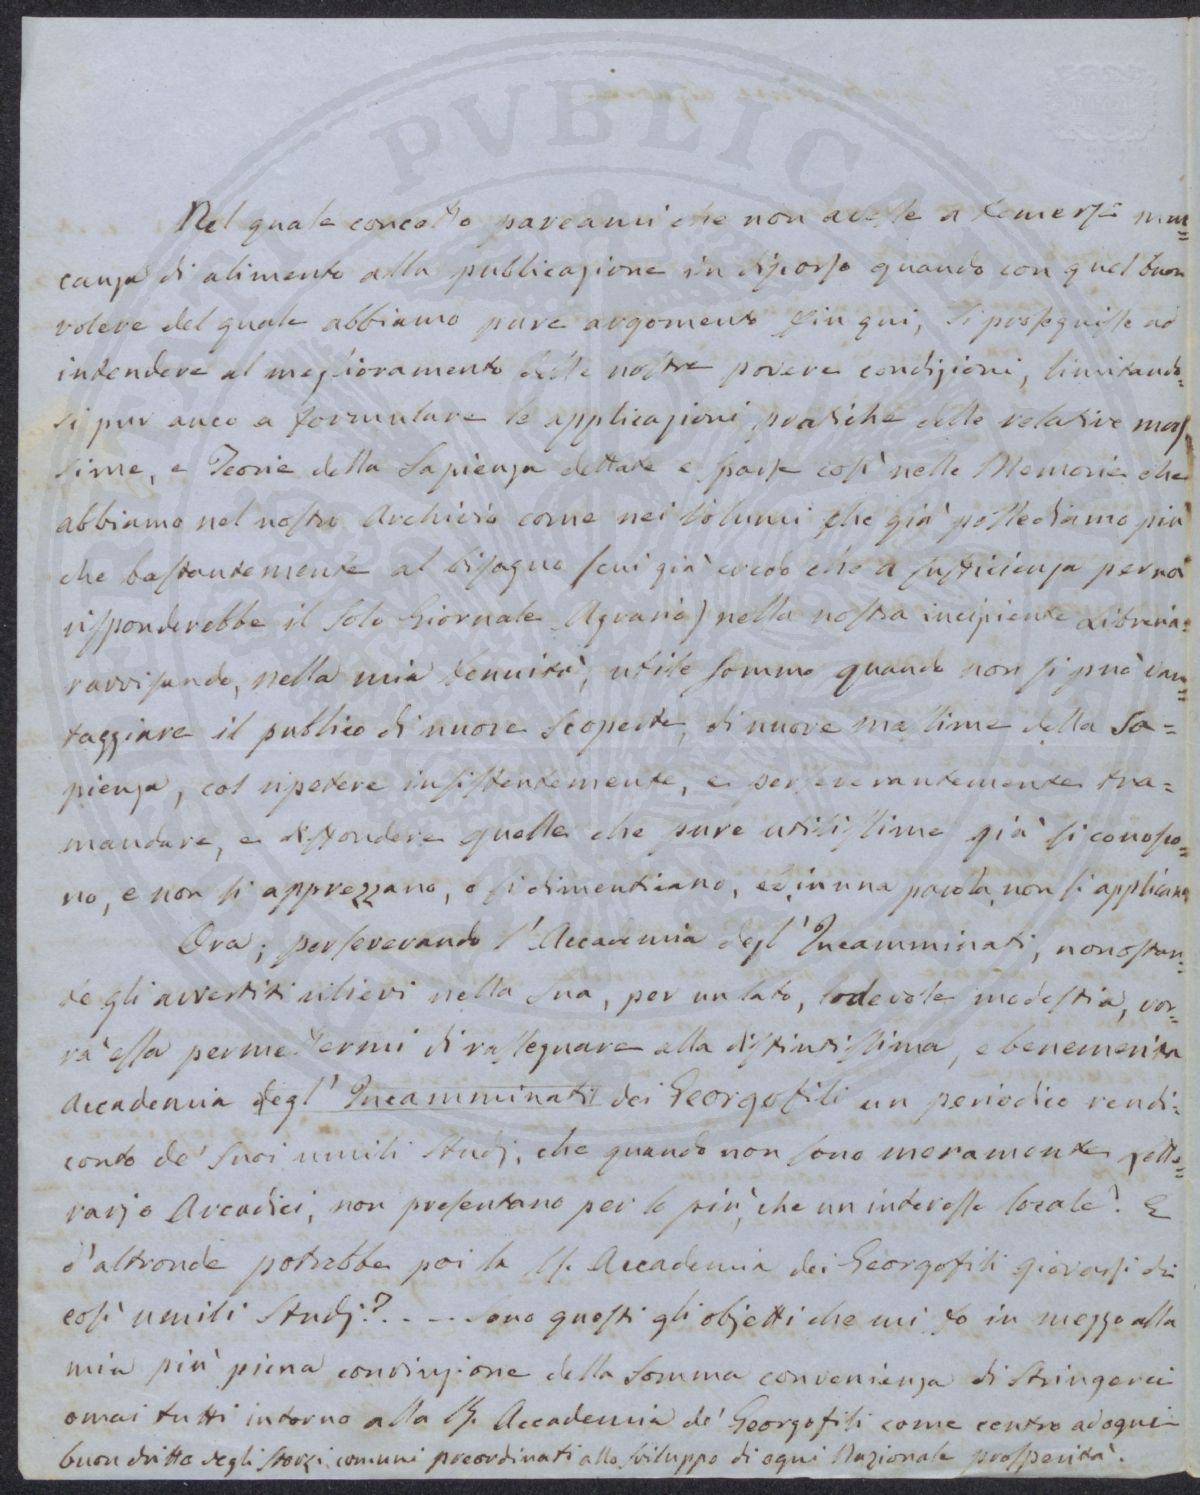 PVBLICA
Nel quale concetto pareami che non avesse a temersi man=
canza di alimento alla publicazione in discorso quando con quel buon
volere del quale abbiamo pure argomento fin qui, si proseguisse ad
intendere al miglioramento delle nostre povere condizioni, limitando=
si pur anco a formulare le applicazioni pratiche delle relative mas
sime, e Teorie della Sapienza dettate e sparse così nelle Memorie che
abbiamo nel nostro Archivio come nei Volumi che già possediamo più
che bastantemente al bisogno (cui già credo che a sufficienza per noi
risponderebbe il solo Giornale Agrario) nella nostra incipiente Libreria:
ravvisando, nella mia tenuità, utile sommo quando non si può van=
taggiare il publico di nuove scoperte, di nuove massime della Sa=
pienza, col ripetere insistentemente, e perseverantemente tra=
mandare, e diffondere quelle che pure utilissime già si conosco=
no, e non si apprezzano, o si dimenticano, ed in una parola, non si applicano
Ora; perseverando l'Accademia degl'Incamminati, nonostan=
te gli avvertiti rilievi nella sua, per un lato, lodevole modestia, vor=
rà essa permettermi di rassegnare alla distintissima, e benemerita
Accademia degl'Incamminati dei Georgofili un periodico rendi=
conto de' suoi umili studj, che quando non sono meramente Lette=
rarj o Arcadici, non presentano per lo più, che un interesse locale? E
d'altronde potrebbe poi la Accademia dei Georgofili giovarsi di
così umili Studj?.... Sono questi gli objetti che mi fo in mezzo alla
mia più piena convinzione della somma convenienza di stringerci
omai tutti intorno alla Accademia de' Georgofili come centro ad ogni
buon dritto degli sforzi comuni preordinati allo sviluppo di ogni Nazionale prosperità.